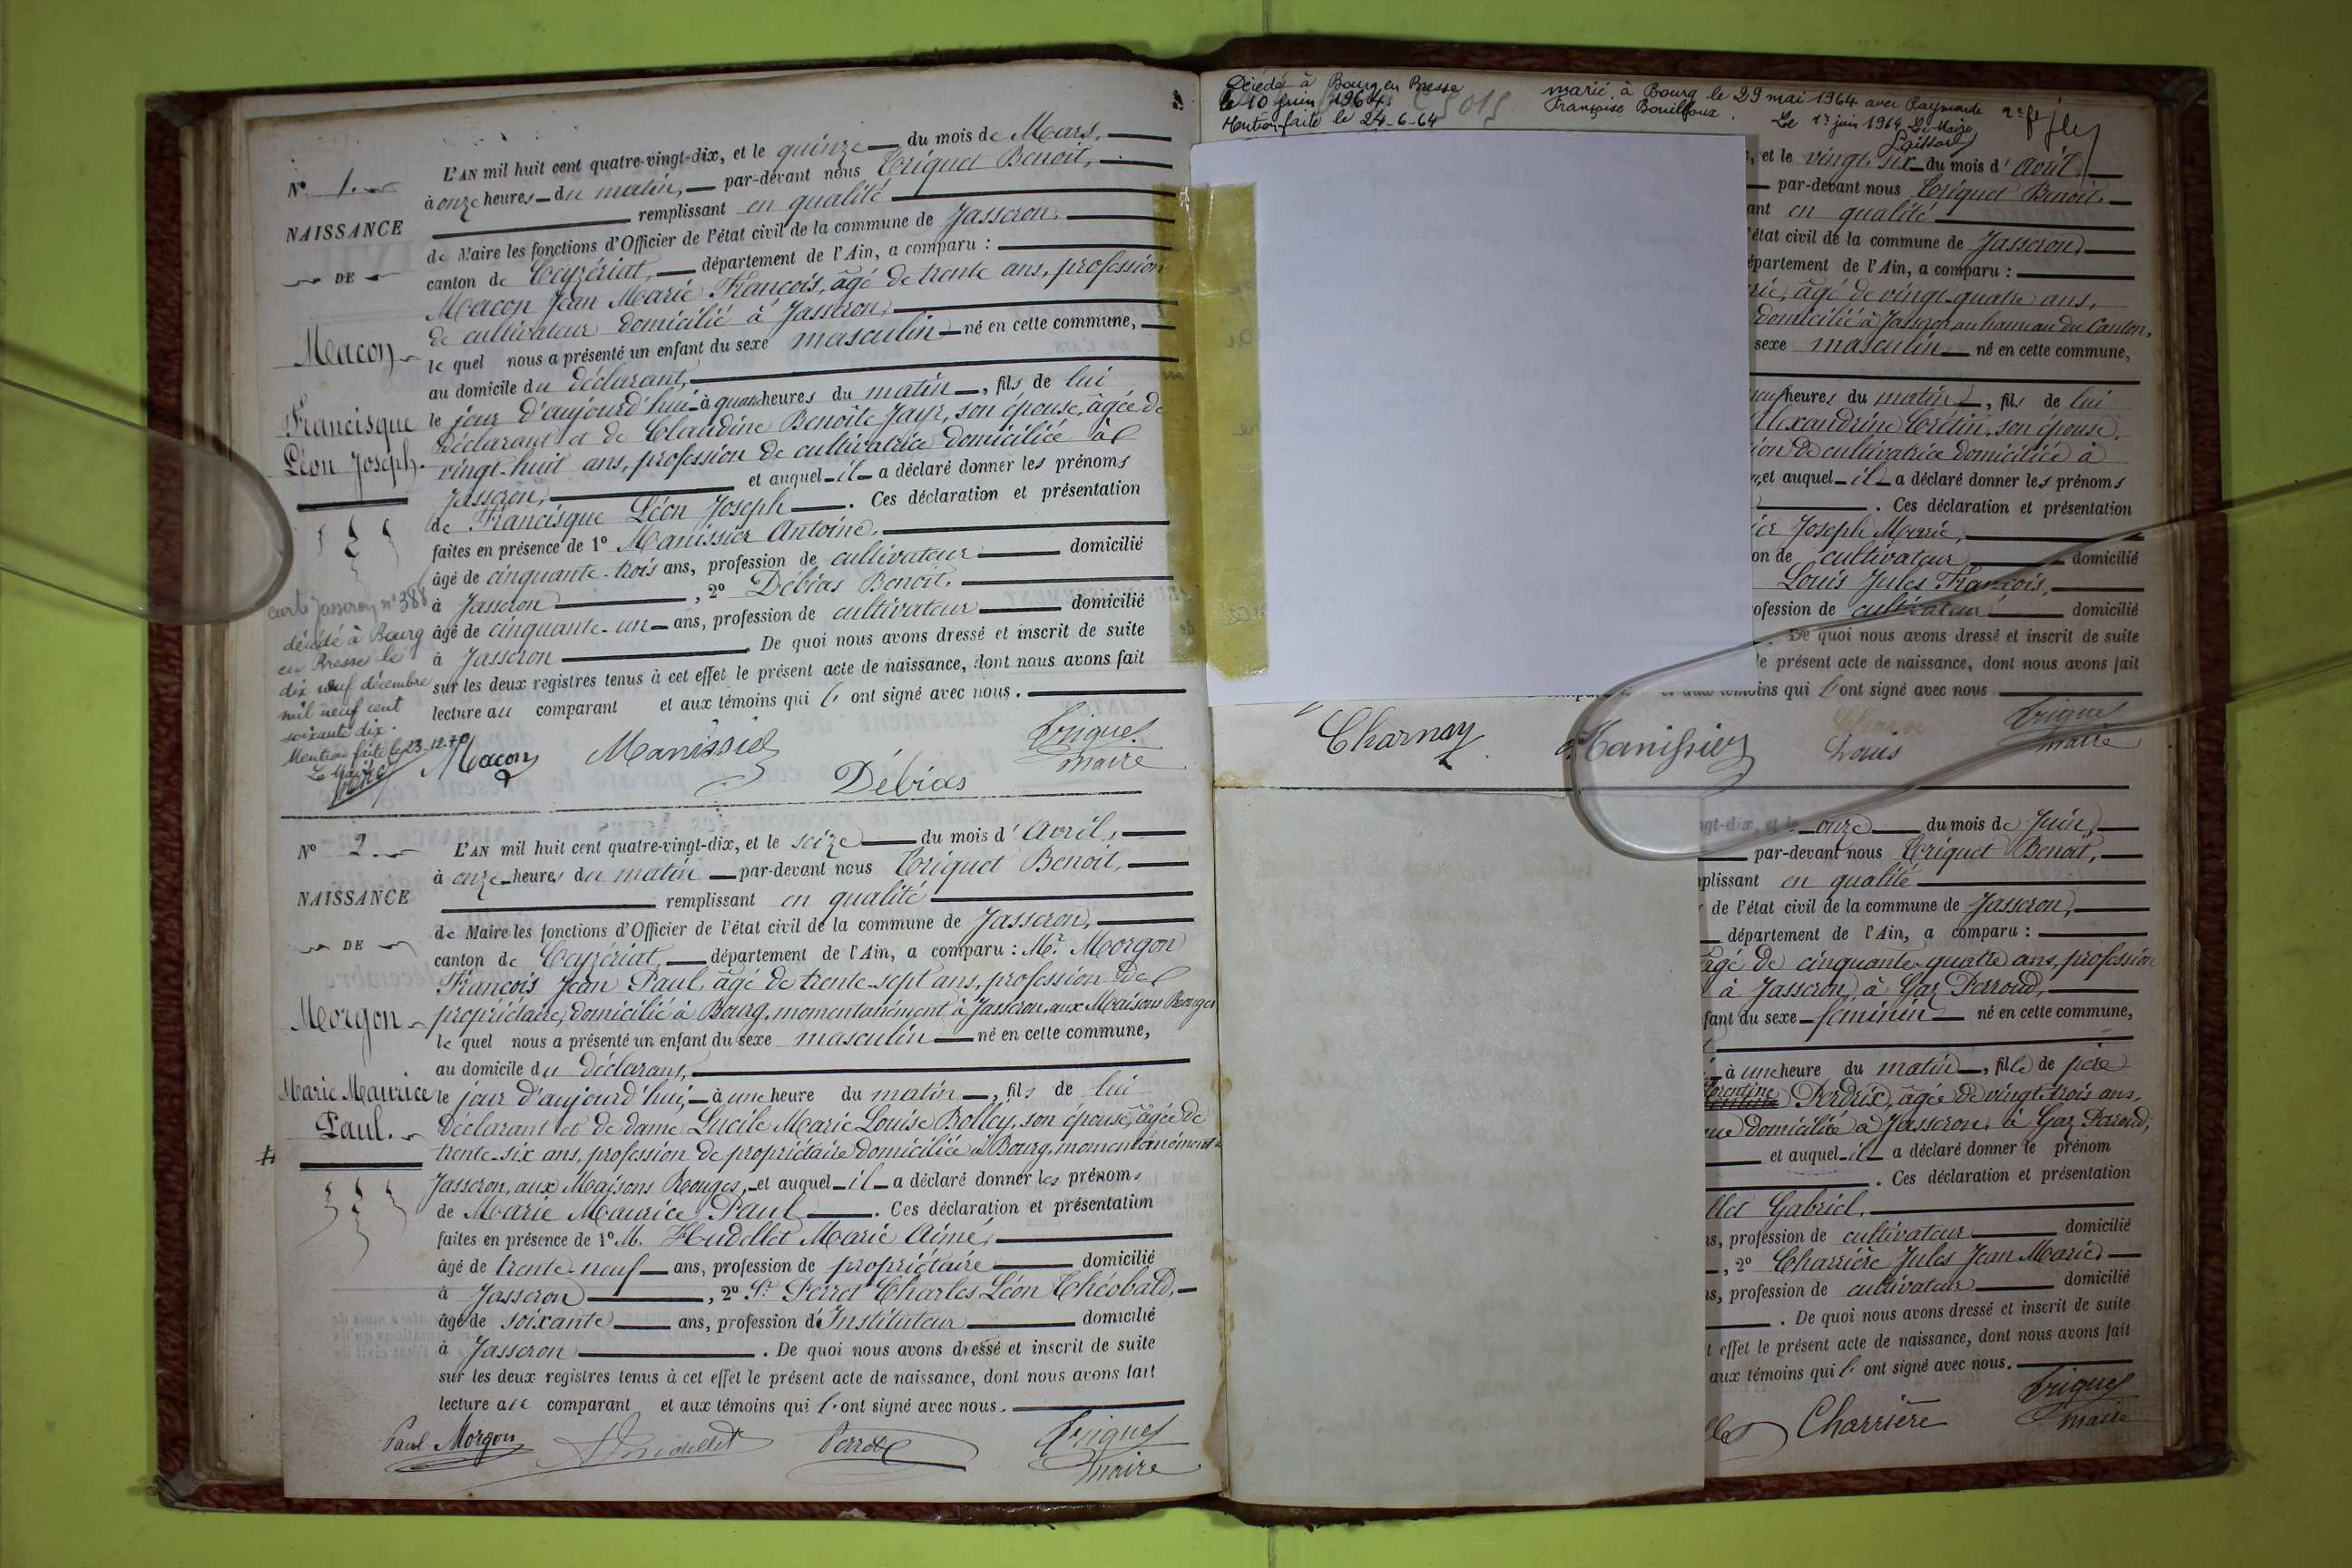 N° 1.
NAISSANCE
DE
Macon
Francisque
Léon Joseph.
carte Jasseron n° 388
décédé à Bourg
en Bresse le
dix neuf décembre
mil neuf cent
soixante dix.
Mention faite le 23-12-70
Le Maire
L'AN mil huit cent quatre-vingt-dix, et le quinze du mois de Mars,
à onze heures du matin, par-devant nous Triquet Benoit,
remplissant en qualité
de Maire les fonctions d'Officier de l'état civil de la commune de Jasseron,
canton de Ceyzériat, département de l'Ain, a comparu :
Macon Jean Marie François, âgé de trente ans, profession
de cultivateur domicilié à Jasseron,
le quel nous a présenté un enfant du sexe masculin né en cette commune,
au domicile du déclarant,
le jour d'aujourd'hui à quatre heures du matin, fils de lui
déclarant et de Claudine Benoîte Jayr, son épouse, âgée de
vingt-huit ans, profession de cultivatrice domiciliée à
Jasseron, et auquel il a déclaré donner les prénoms
de Francisque Léon Joseph. Ces déclaration et présentation
faites en présence de 1° Manissier Antoine,
âgé de cinquante-trois ans, profession de cultivateur domicilié
à Jasseron, 2° Débias Benoit,
âgé de cinquante-un ans, profession de cultivateur domicilié
à Jasseron. De quoi nous avons dressé et inscrit de suite
sur les deux registres tenus à cet effet le présent acte de naissance, dont nous avons fait
lecture au comparant et aux témoins qui l'ont signé avec nous.
Macon Manissier Débias Triquet
maire
N° 2.
NAISSANCE
DE
Morgon
Marie Maurice
Paul.
L'AN mil huit cent quatre-vingt-dix, et le seize du mois d'Avril,
à onze heures du matin par-devant nous Triquet Benoit,
remplissant en qualité
de Maire les fonctions d'Officier de l'état civil de la commune de Jasseron,
canton de Ceyzériat, département de l'Ain, a comparu : Mr Morgon
François Jean Paul âgé de trente-sept ans, profession de
propriétaire, domicilié à Bourg, momentanément à Jasseron, aux Maisons Rouges
le quel nous a présenté un enfant du sexe masculin né en cette commune,
au domicile du déclarant,
le jour d'aujourd'hui, à une heure du matin, fils de lui
déclarant et de dame Lucile Marie Louise Bolley, son épouse, âgée de
trente-six ans, profession de propriétaire domiciliée à Bourg, momentanément à
Jasseron, aux Maisons Rouges, et auquel il a déclaré donner les prénoms
de Marie Maurice Paul. Ces déclaration et présentation
faites en présence de 1° M. Hudellet Marie Aimé,
âgé de trente-neuf ans, profession de propriétaire domicilié
à Jasseron, 2° Sr Perret Charles Léon Théobald,
âgé de soixante ans, profession d'Instituteur domicilié
à Jasseron. De quoi nous avons dressé et inscrit de suite
sur les deux registres tenus à cet effet le présent acte de naissance, dont nous avons fait
lecture au comparant et aux témoins qui l'ont signé avec nous.
Paul Morgon Hudellet Perret Triquet
maire
Décédé à Bourg en Bresse
le 10 juin 1964.
Mention faite le 24-6-64
marié à Bourg le 29 mai 1964 avec Raymonde
Françoise Bouilloux.
Le 1er juin 1964 Le Maire
, et le vingt-six du mois d'Avril,
par-devant nous Triquet Benoit,
ant en qualité
état civil de la commune de Jasseron,
épartement de l'Ain, a comparu :
rie, âgé de vingt-quatre ans,
domicilié à Jasseron au hameau du Canton,
sexe masculin né en cette commune,
heures du matin, fils de lui
Alexandrine Crétin, son épouse,
ion de cultivatrice domiciliée à
et auquel il a déclaré donner les prénoms
. Ces déclaration et présentation
ier Joseph Marie,
on de cultivateur domicilié
Louis Jules François,
ofession de cultivateur domicilié
. De quoi nous avons dressé et inscrit de suite
le présent acte de naissance, dont nous avons fait
témoins qui l'ont signé avec nous
Charnay Manissier Louis Triquet
maire
ngt-dix, et le onze du mois de Juin,
par-devant nous Triquet Benoit,
plissant en qualité
de l'état civil de la commune de Jasseron,
département de l'Ain, a comparu :
âgé de cinquante-quatre ans, profession
à Jasseron, à Gaz Perroud,
fant du sexe féminin né en cette commune,
à une heure du matin, fille de père
Florentine Perdrix, âgée de vingt-trois ans,
que domiciliée à Jasseron, à Gaz Perroud,
et auquel il a déclaré donner le prénom
. Ces déclaration et présentation
llet Gabriel,
ns, profession de cultivateur domicilié
, 2° Charrière Jules Jean Marie
ns, profession de cultivateur domicilié
. De quoi nous avons dressé et inscrit de suite
effet le présent acte de naissance, dont nous avons fait
aux témoins qui l'ont signé avec nous.
Charrière Triquet
maire